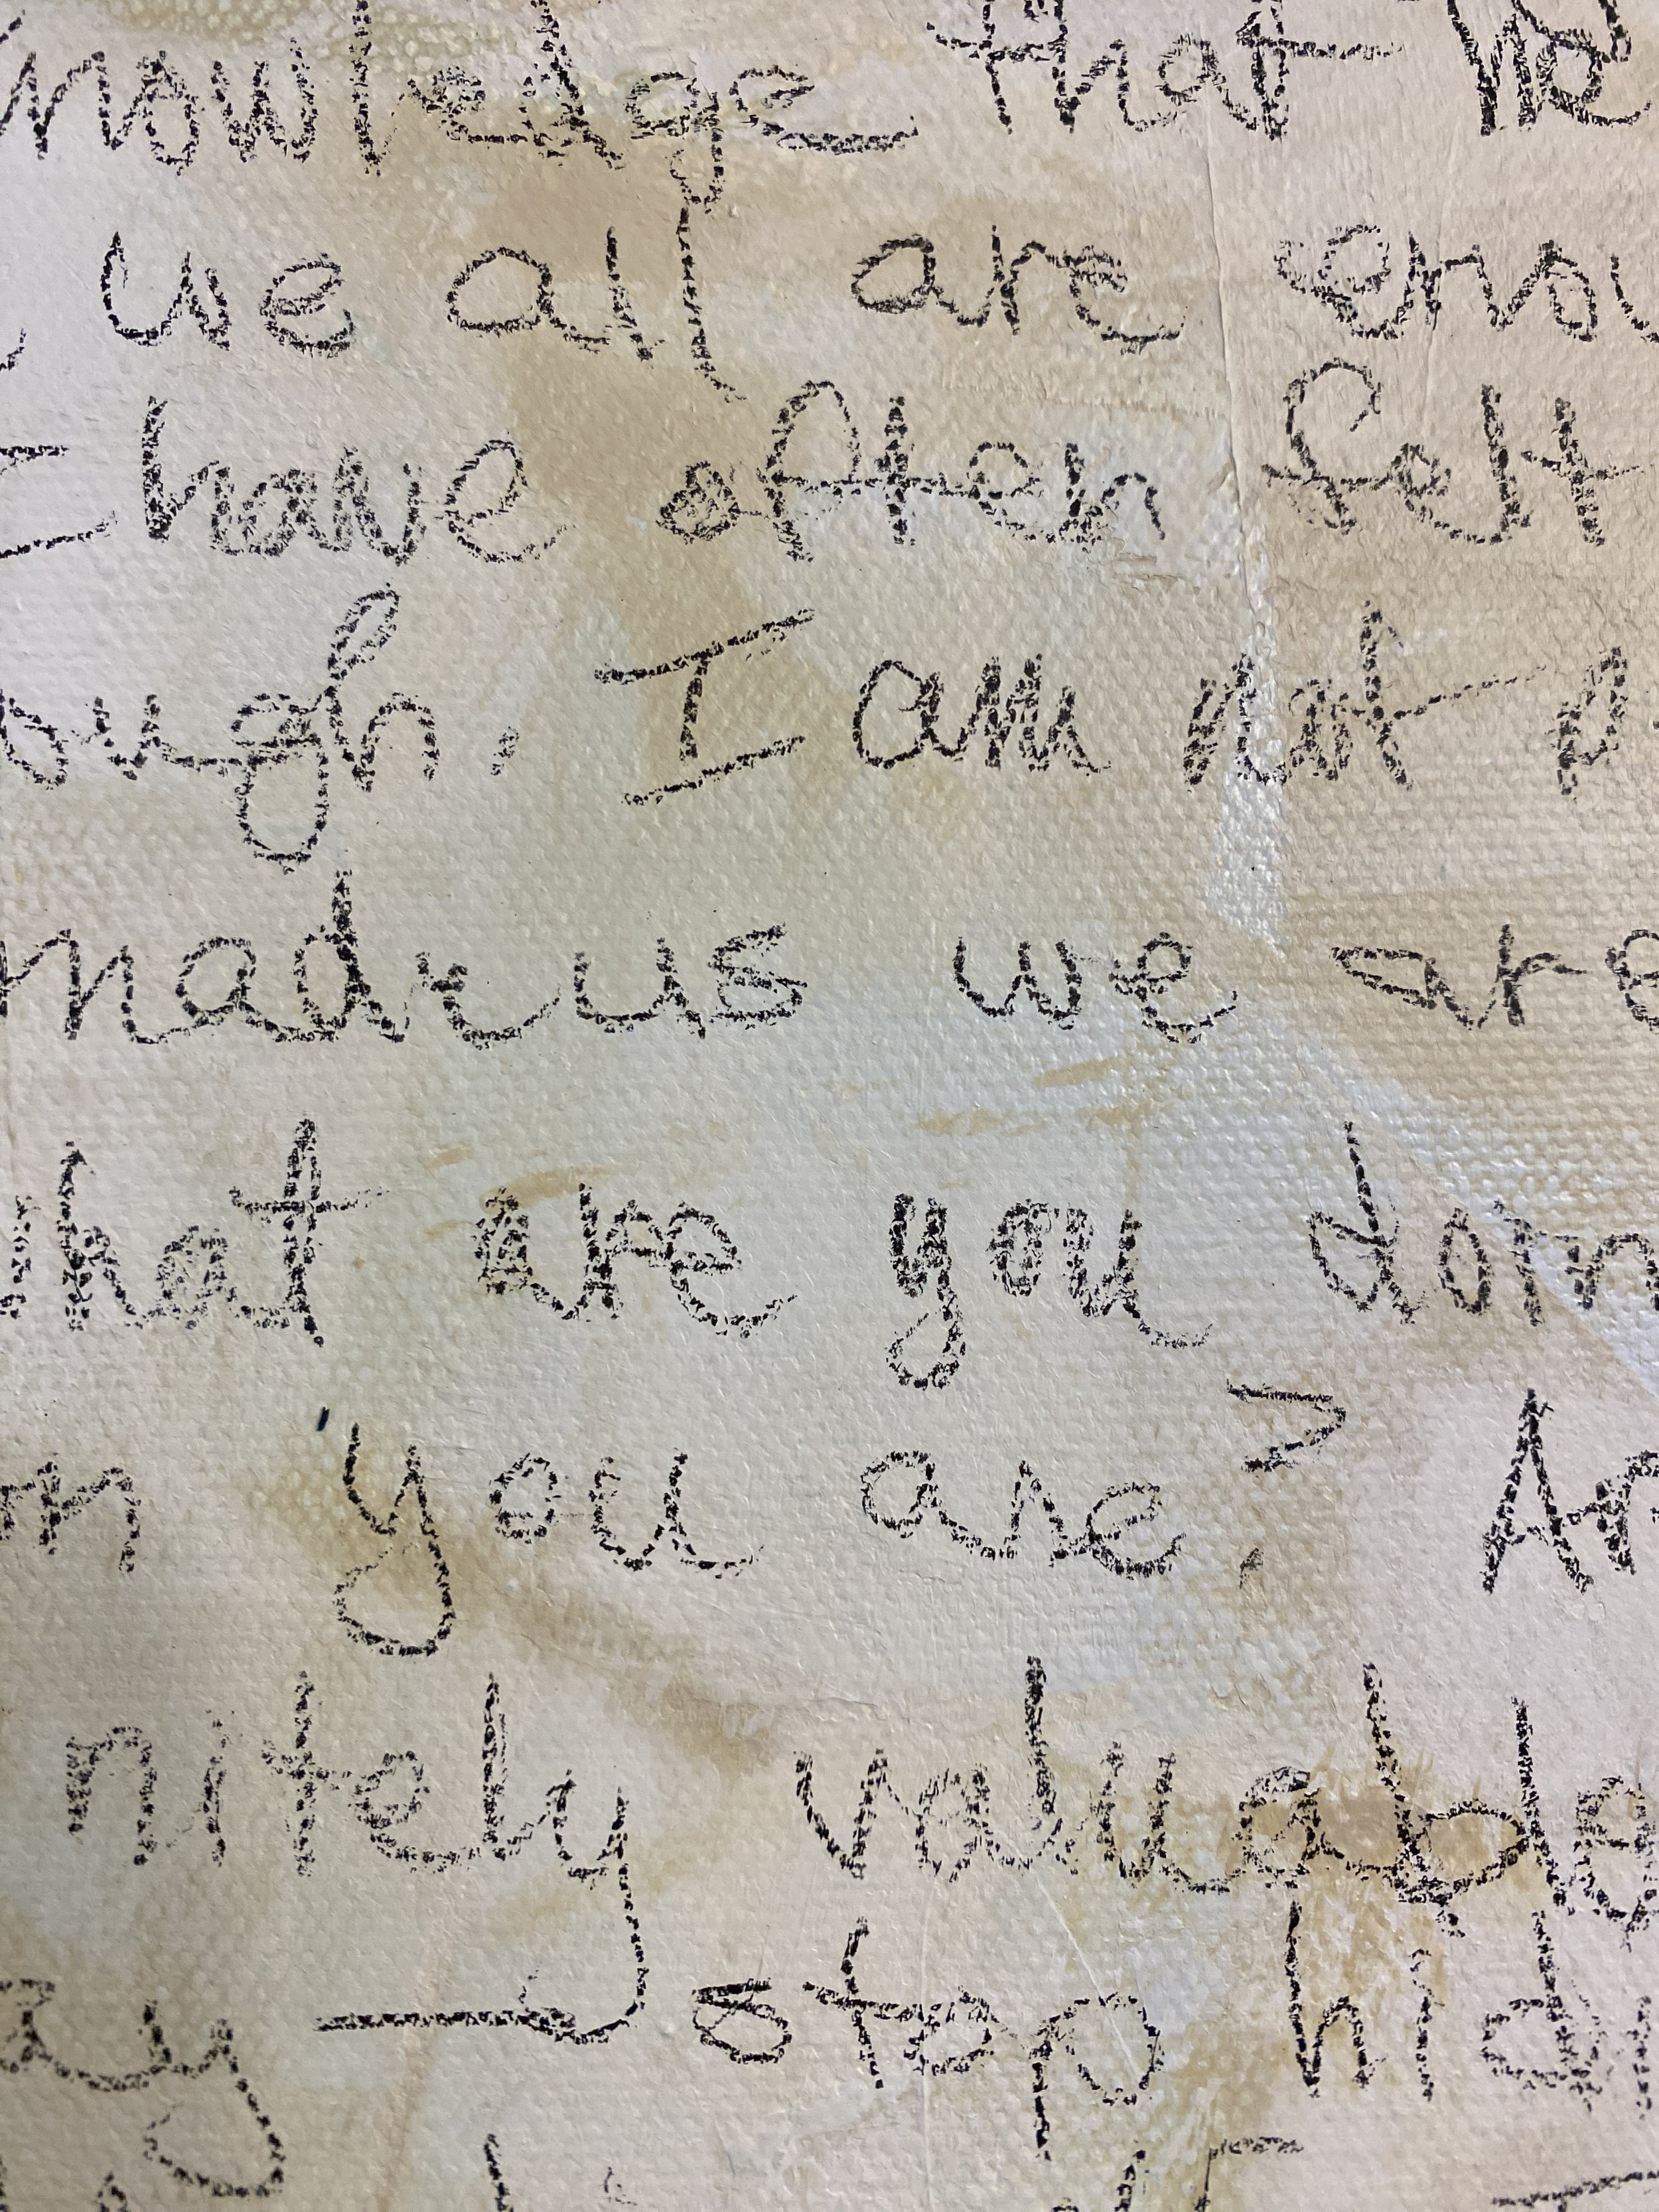 knowledge that he
we all are enou
I have often felt
ough, I am not
made us we are
what are you doin
you are? An
nitely valuable
stop hidi